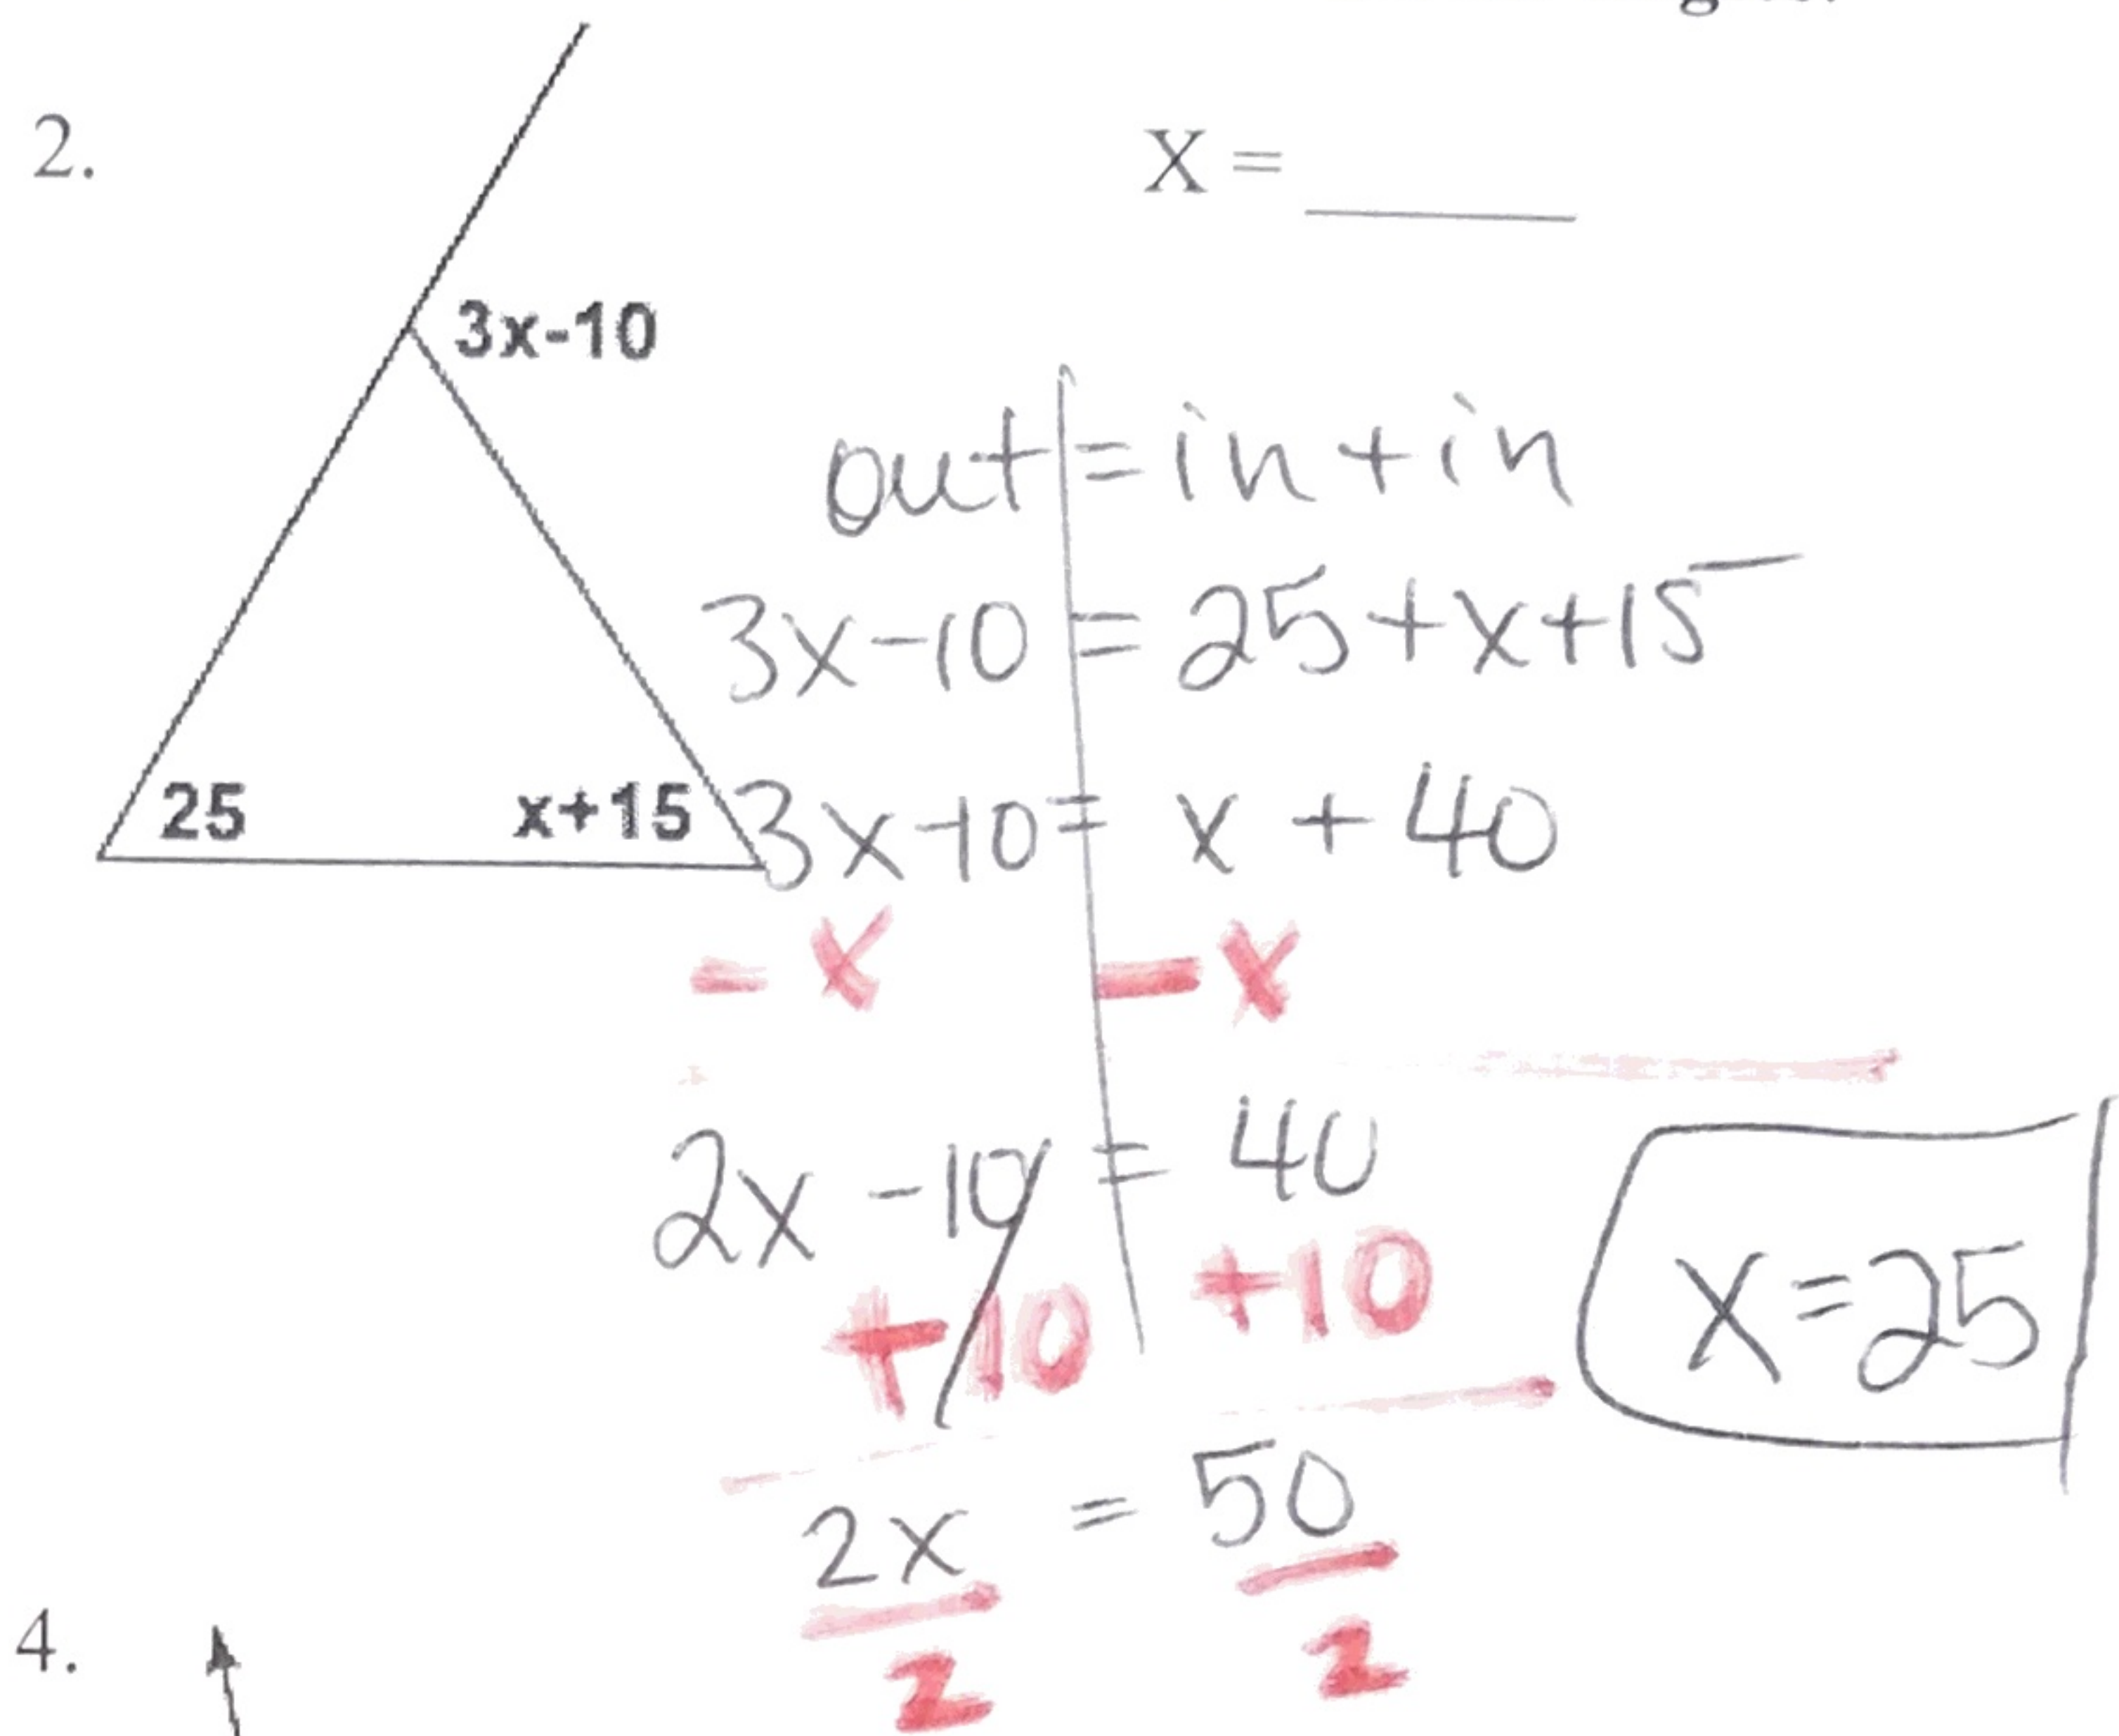 2.
X = ______
3x-10
25
x+15
out = in + in
3x-10 = 25 + x + 15
3x-10 = x + 40
- x - x
2x - 10 = 40
+10 +10
2x = 50
2 2
x = 25
4.